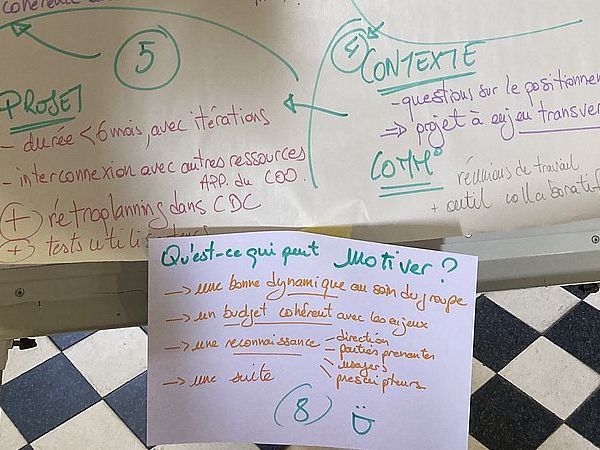 5
PROJET
- durée < 6 mois, avec itérations
- interconnexion avec autres ressources
APP. du COO.
+ rétroplanning dans CDC
+ tests utili
4
CONTEXTE
- questions sur le positionnem
⇒ projet à enjeu transver
COMM°
réunions de travail
+ outil collaboratif
Qu'est-ce qui peut Motiver ?
→ une bonne dynamique au sein du groupe
→ un budget cohérent avec les enjeux
→ une reconnaissance - direction
- parties prenantes
usagers
prescripteurs
→ une suite
8